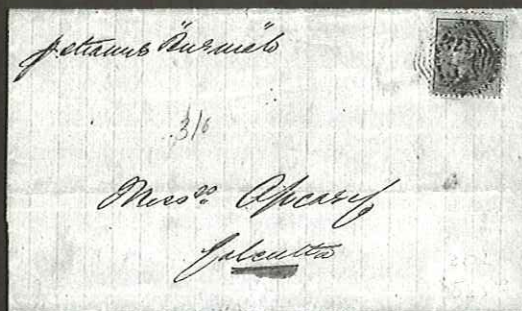 p steamer "Burmah"
3/6
Messrs Apcar
Calcutta